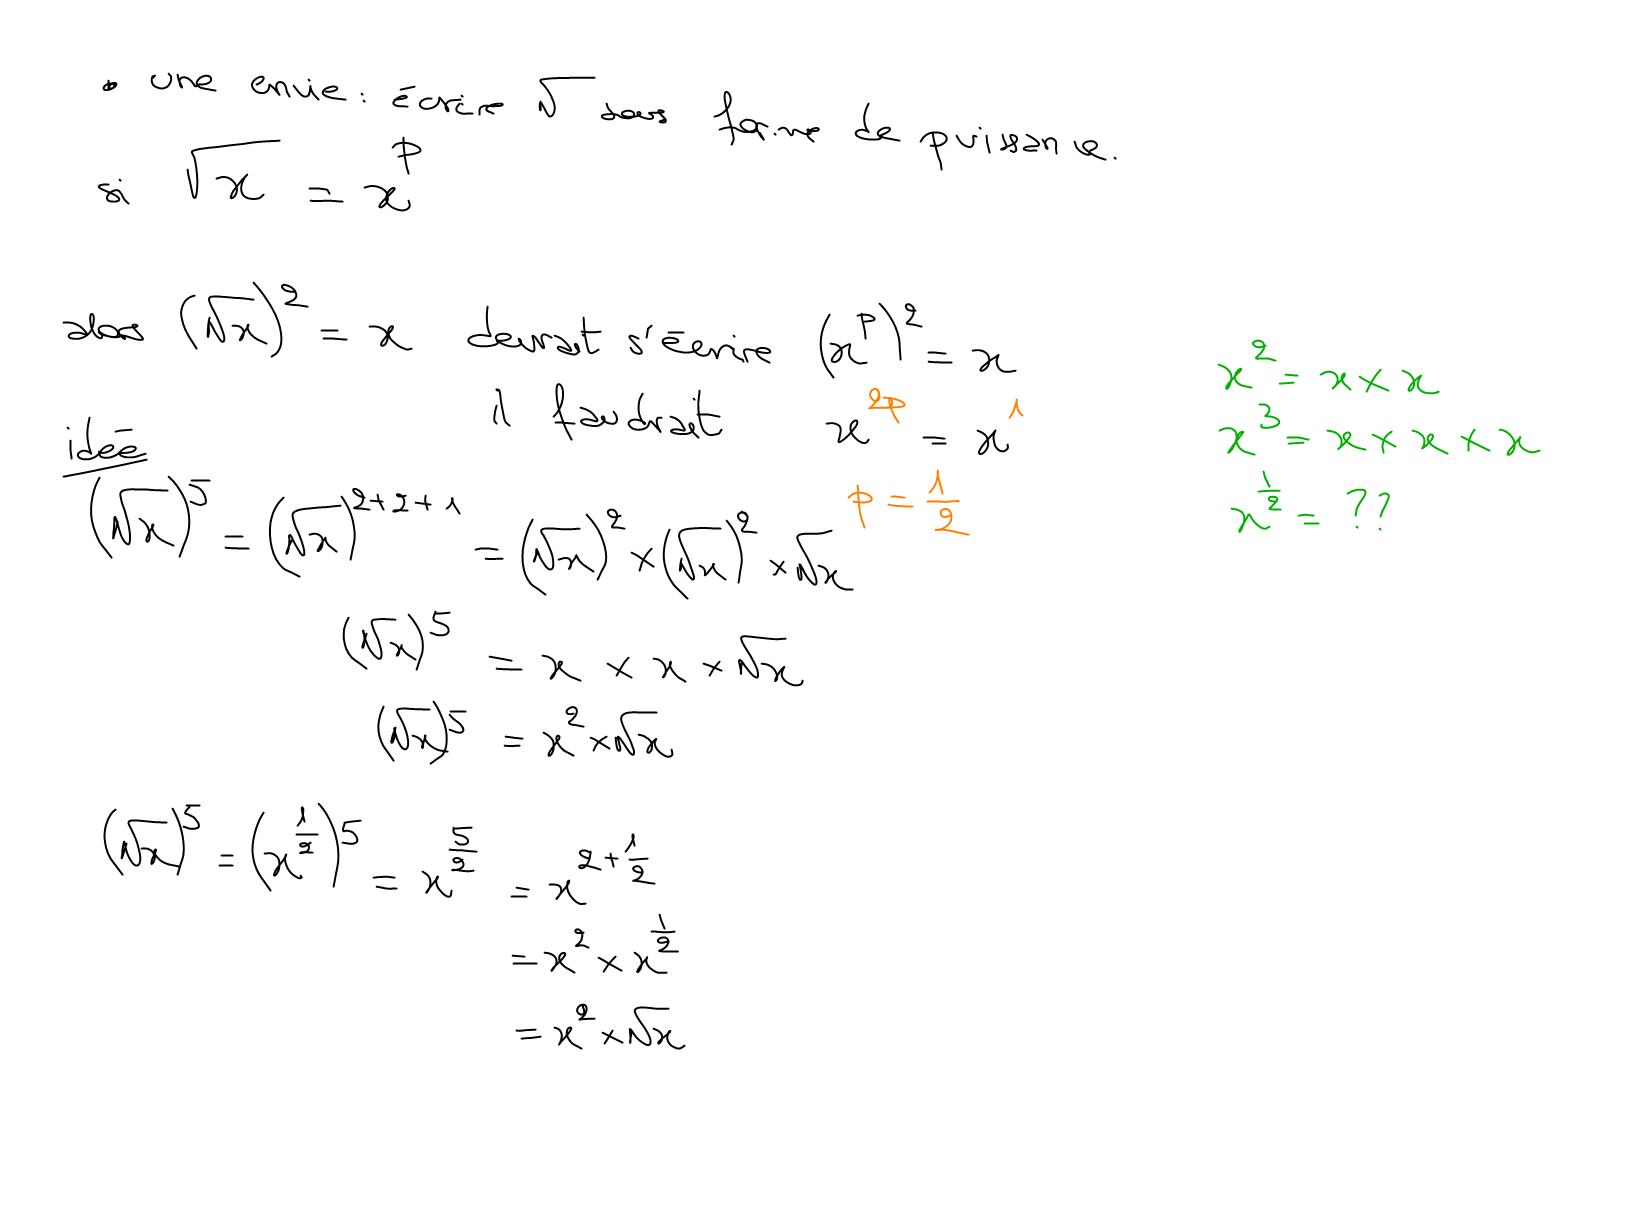 • une envie : écrire √ sous forme de puissance.
si √x = x^p
alors (√x)^2 = x devrait s'écrire (x^p)^2 = x
il faudrait x^{2p} = x^1
p = 1/2
idée
(√x)^5 = (√x)^{2+2+1} = (√x)^2 × (√x)^2 × √x
(√x)^5 = x × x × √x
(√x)^5 = x^2 × √x
(√x)^5 = (x^{1/2})^5 = x^{5/2} = x^{2+1/2}
= x^2 × x^{1/2}
= x^2 × √x
x^2 = x × x
x^3 = x × x × x
x^{1/2} = ??